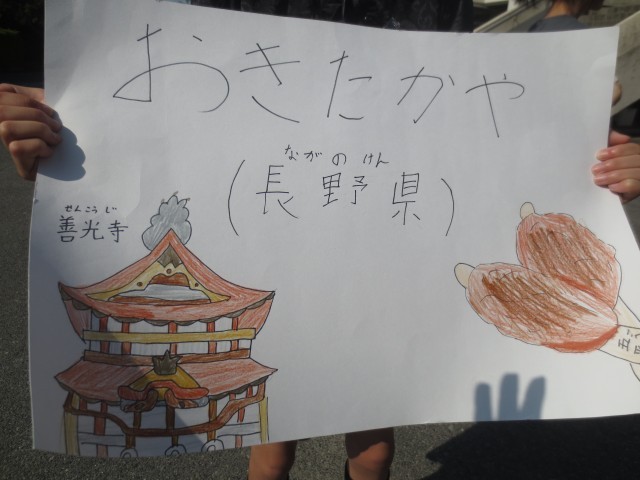 おきたかや
ながの けん
(長野県)
せんこうじ
善光寺
五